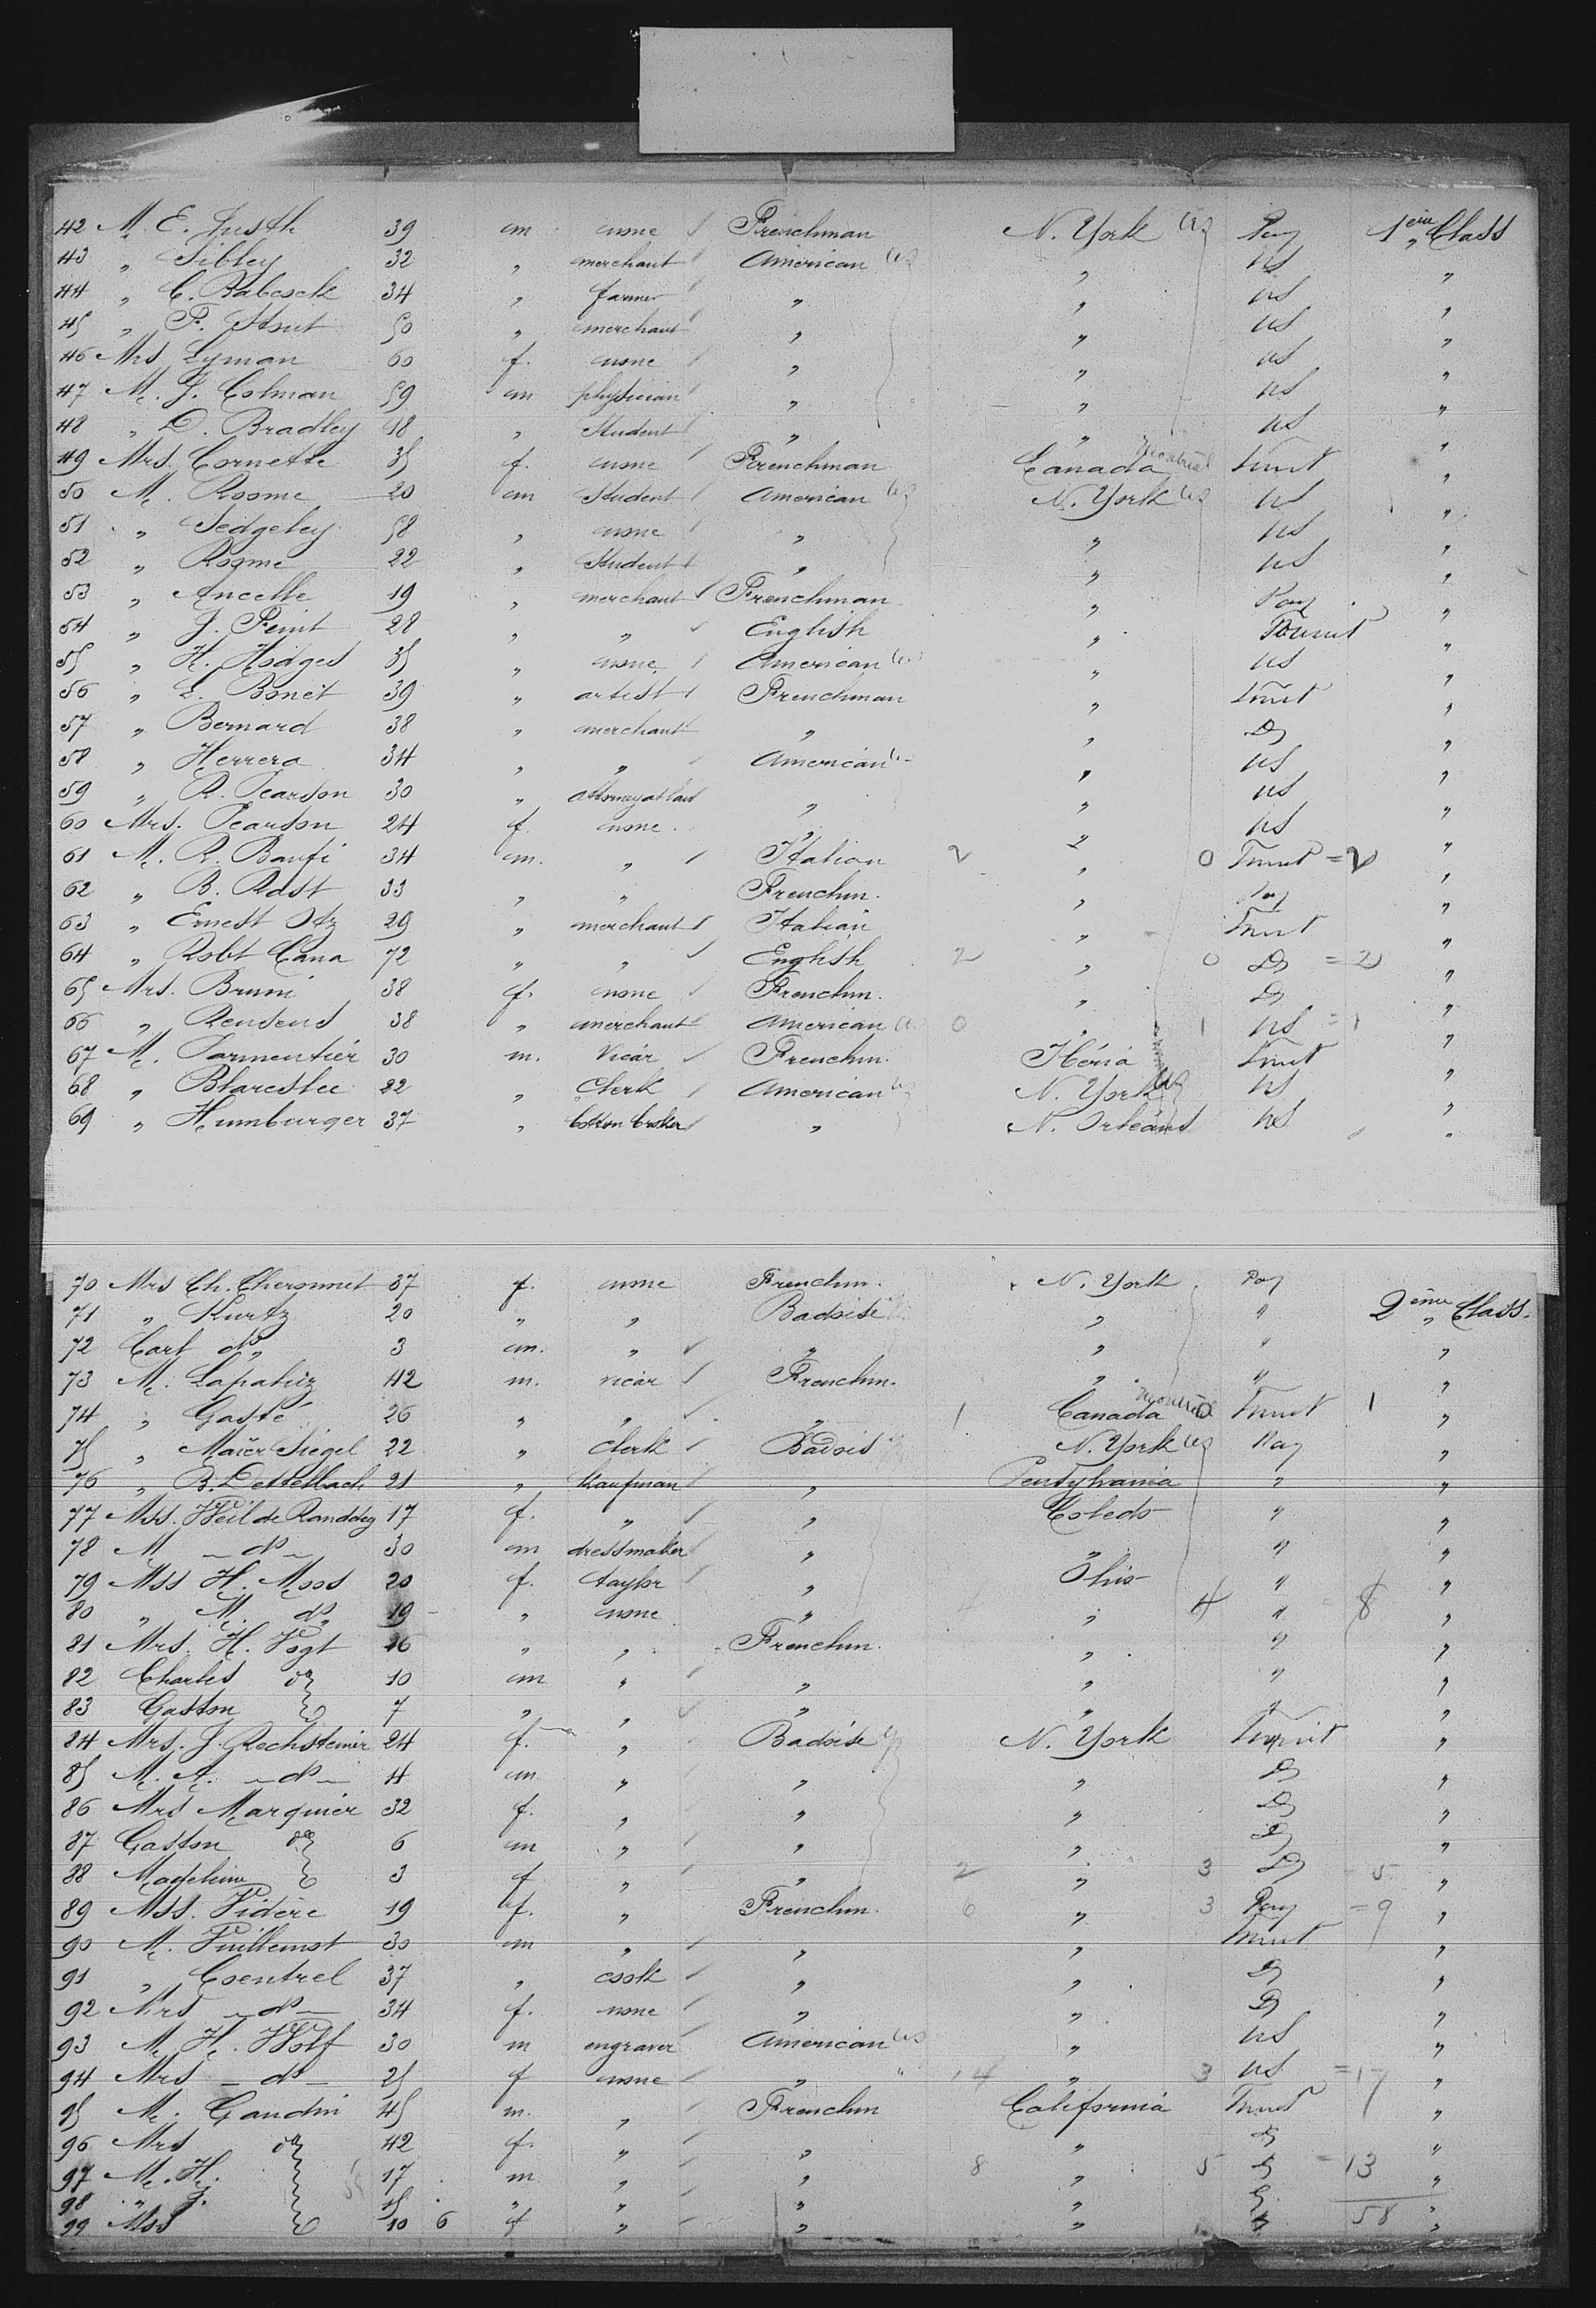 42 M. E. Justh 39 m none Frenchman N. York US Pay 1ere Class
43 " Sibley 32 " merchant American US " US "
44 " C. Babcock 34 " farmer " " US "
45 " F. Stout 50 " merchant " " US "
46 Mrs Lyman 60 f. none " " US "
47 M. J. Colman 59 m physician " " US "
48 " D. Bradley 18 " Student " " US "
49 Mrs. Cornette 35 f. none Frenchman Canada Montreal Turist "
50 M. Roome 20 m Student American US N. York US US "
51 " Sedgeley 58 " none " " US "
52 " Roome 22 " Student " " US "
53 " Ancelle 19 " merchant Frenchman " Pay "
54 " J. Feint 28 " " English " Tourist "
55 " H. Hodges 35 " none American US " US "
56 " L. Bonet 39 " artist Frenchman " Turist "
57 " Bernard 38 " merchant " " Do "
58 " Herrera 34 " " American " US "
59 " R. Pearson 30 " attorney at law " " US "
60 Mrs. Pearson 24 f. none " " US "
61 M. R. Banfi 34 m. " Italian 2 " 0 Turist = 2 "
62 " B. Rast 33 " " Frenchm. " Pay "
63 " Ernest Otz 29 " merchant Italian " Turist "
64 " Robt Cana 72 " " English 2 " 0 Do = 2 "
65 Mrs. Bruni 38 f. none Frenchm. " Do "
66 " Rensens 38 " merchant American 0 " 1 US = 1 "
67 M. Parmentier 30 m. Vicar Frenchm. Turist "
68 " Blareslee 22 " Clerk American US N. York US US "
69 " Humburger 37 " Cotton broker " N. Orleans US "
70 Mrs Ch. Cheronnet 37 f. none Frenchm. N. York Pay
71 " Kurtz 20 " " Badoise " " 2eme Class.
72 Carl do 3 m. " " " " "
73 M. Lapatiez 42 m. vicar Frenchm. " " "
74 " Gasté 26 " " " 1 Canada Montreal 0 Turist 1 "
75 " Maïer Siegel 22 " Clerk Badois N. York US Pay "
76 " B. Dettelbach 21 " Kaufman " Pensylvania " "
77 Mss. Weil de Randdeg 17 f. " " Toledo " "
78 M. do 30 m dressmaker " " " "
79 Mss H. Moos 20 f. taylor " Ohio " "
80 " M. do 19 " none " 4 " 4 " 8 "
81 Mrs. H. Vogt 26 " " Frenchm. " " "
82 Charles do 10 m " " " " "
83 Gaston 7 " " " " " "
84 Mrs. J. Rechsteiner 24 f. " Badoise N. York Turist "
85 M. A. do 4 m " " " Do "
86 Mrs Marquier 32 f. " " " Do "
87 Gaston do 6 m " " " Do "
88 Madeleine 3 f " " 2 " 3 Do 5 "
89 Mss. Fidère 19 f. " Frenchm. 6 " 3 Pay = 9 "
90 M. Vuillemot 30 m " " " Turist "
91 " Coentrel 37 " cook " " Do "
92 Mrs do 34 f. none " " Do "
93 M. H. Wolf 30 m engraver American US " US "
94 Mrs do 25 f none " 14 " 3 US = 17 "
95 M. Gandin 45 m. " Frenchm California Turist "
96 Mrs do 42 f. " " " Do "
97 M. H. 17 m " " 8 " 5 Do = 13 "
98 " J. 15 " " " " "
99 Mss 10 6 f " " " 58 "